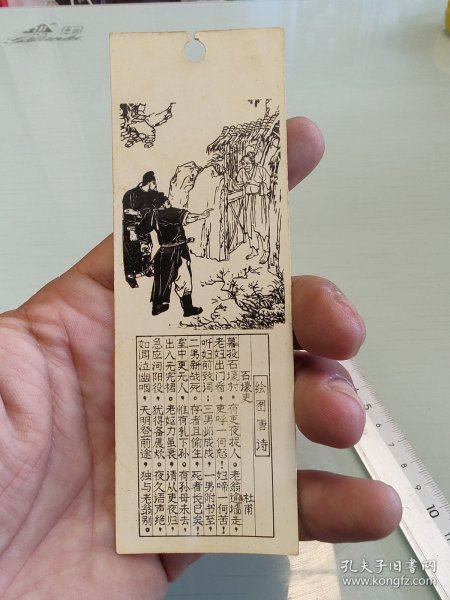 绘图唐诗
石壕吏 杜甫
暮投石壕村，有吏夜捉人。老翁逾墙走，
老妇出门看。吏呼一何怒！妇啼一何苦！
听妇前致词：三男邺城戍。一男附书至，
二男新战死。存者且偷生，死者长已矣！
室中更无人，惟有乳下孙。有孙母未去，
出入无完裙。老妪力虽衰，请从吏夜归，
急应河阳役，犹得备晨炊。夜久语声绝，
如闻泣幽咽。天明登前途，独与老翁别。
孔夫子旧书网
www.kongfz.com